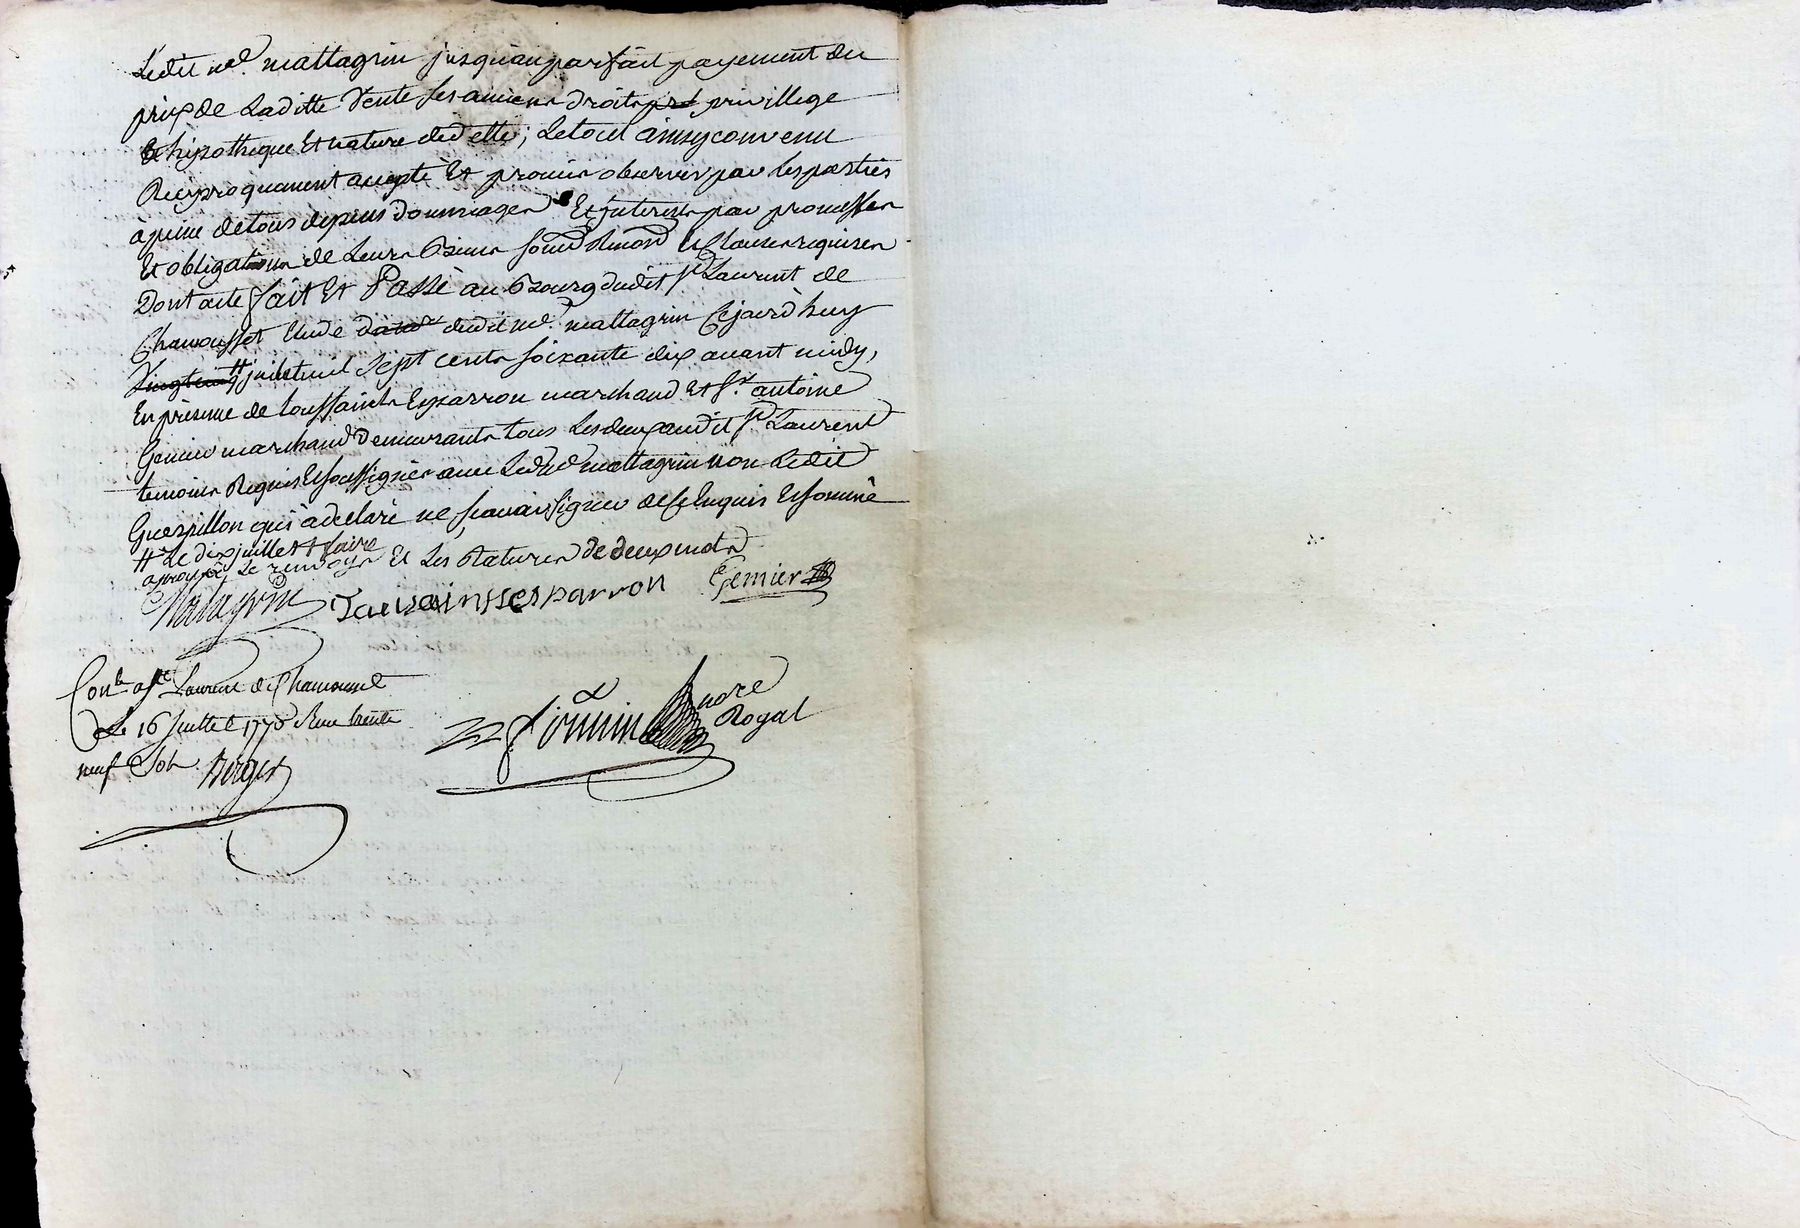 Ledit me. mattagrin jusqu'au parfait payement du
prix de Laditte Vente ses anciens droits privillege
Et hypotheque Et nature de dette; Le tout ainsy convenu
Reciproquement accepté Et promis observer par les parties
à peine de tous depens dommages Et Interests par promesses
Et obligations de Leurs Biens soumis Renon Et Clauses requises
Dont acte fait Et Passé au Bourg dudit st Laurent de
Chamousset Etude dudit me. mattagrin Cejourd'huy
Vingt cinq # juillet mil Sept cents soixante dix avant midy,
En présence de toussaints Esparron marchand Et sr. antoine
Gemier marchand Demeurants tous Les deux audit st Laurent
temoins Requis Et soussignés avec Ledt me mattagrin non Ledit
Guespillon qui à declaré ne sçavoir signer de ce Enquis Et sommé
# Le dix juillet ++ faire
aprouvés Le renvoys Et Les Ratures de deux mots
Matagrin Tousainssesparron Gemier
Conlé a st Laurent de Chamousset
Le 16 Juillet 1770 Reçu trente
neuf Sols Berger
Formin nore
Royal